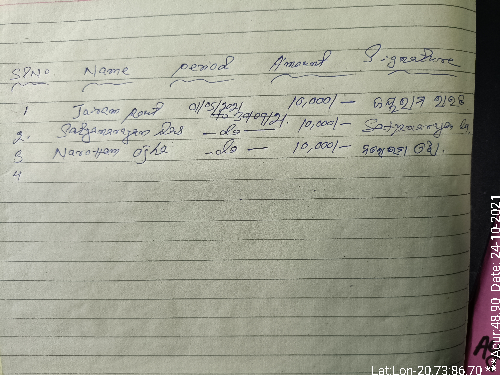 Sl No Name period Amount Signature
1 Jairam Rout 01/05/2021 10,000/-
to 30/09/21
2. Satyanarayan Das - do - 10,000/- Satyanarayan
3 Narottam Ojha - do - 10,000/-
4
Lat:Lon-20.73:86.70 **Acur:48.90 Date: 24-10-2021